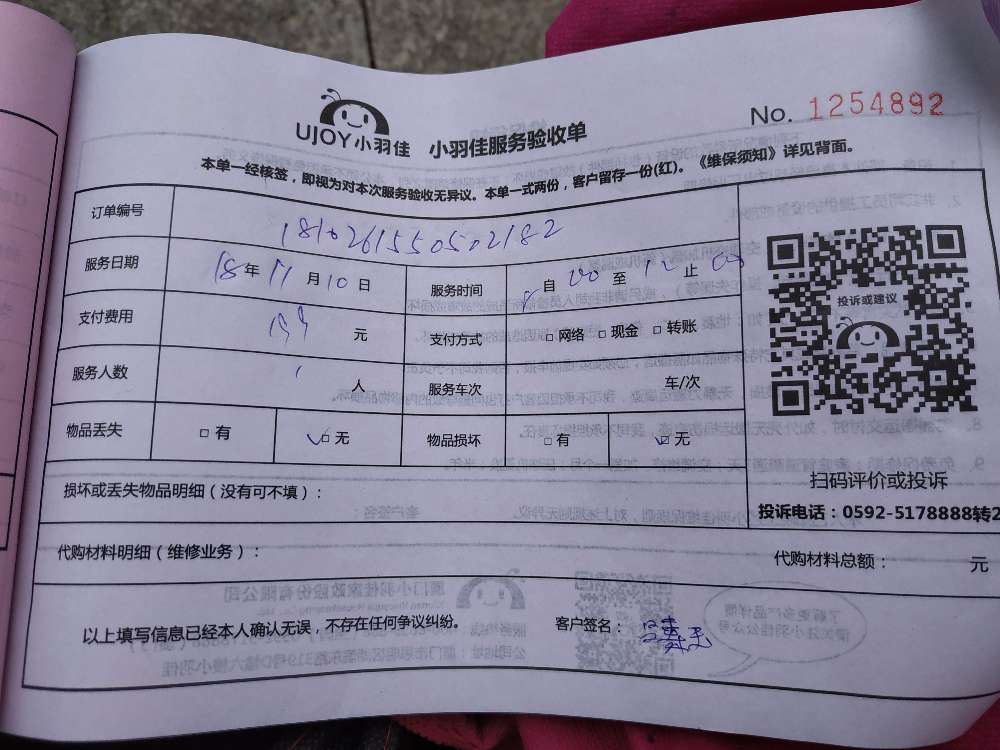 No. 1254892
UJOY小羽佳 小羽佳服务验收单
本单一经核签，即视为对本次服务验收无异议。本单一式两份，客户留存一份(红)。《维保须知》详见背面。
订单编号 1810261550502182
服务日期 18年11月10日 服务时间 自 至 12 止
支付费用 元 支付方式 □网络 □现金 □转账
服务人数 1 人 服务车次 车/次
物品丢失 □有 ☑无 物品损坏 □有 ☑无
投诉或建议
扫码评价或投诉
投诉电话：0592-5178888转2
损坏或丢失物品明细（没有可不填）：
代购材料明细（维修业务）： 代购材料总额： 元
以上填写信息已经本人确认无误，不存在任何争议纠纷。 客户签名：